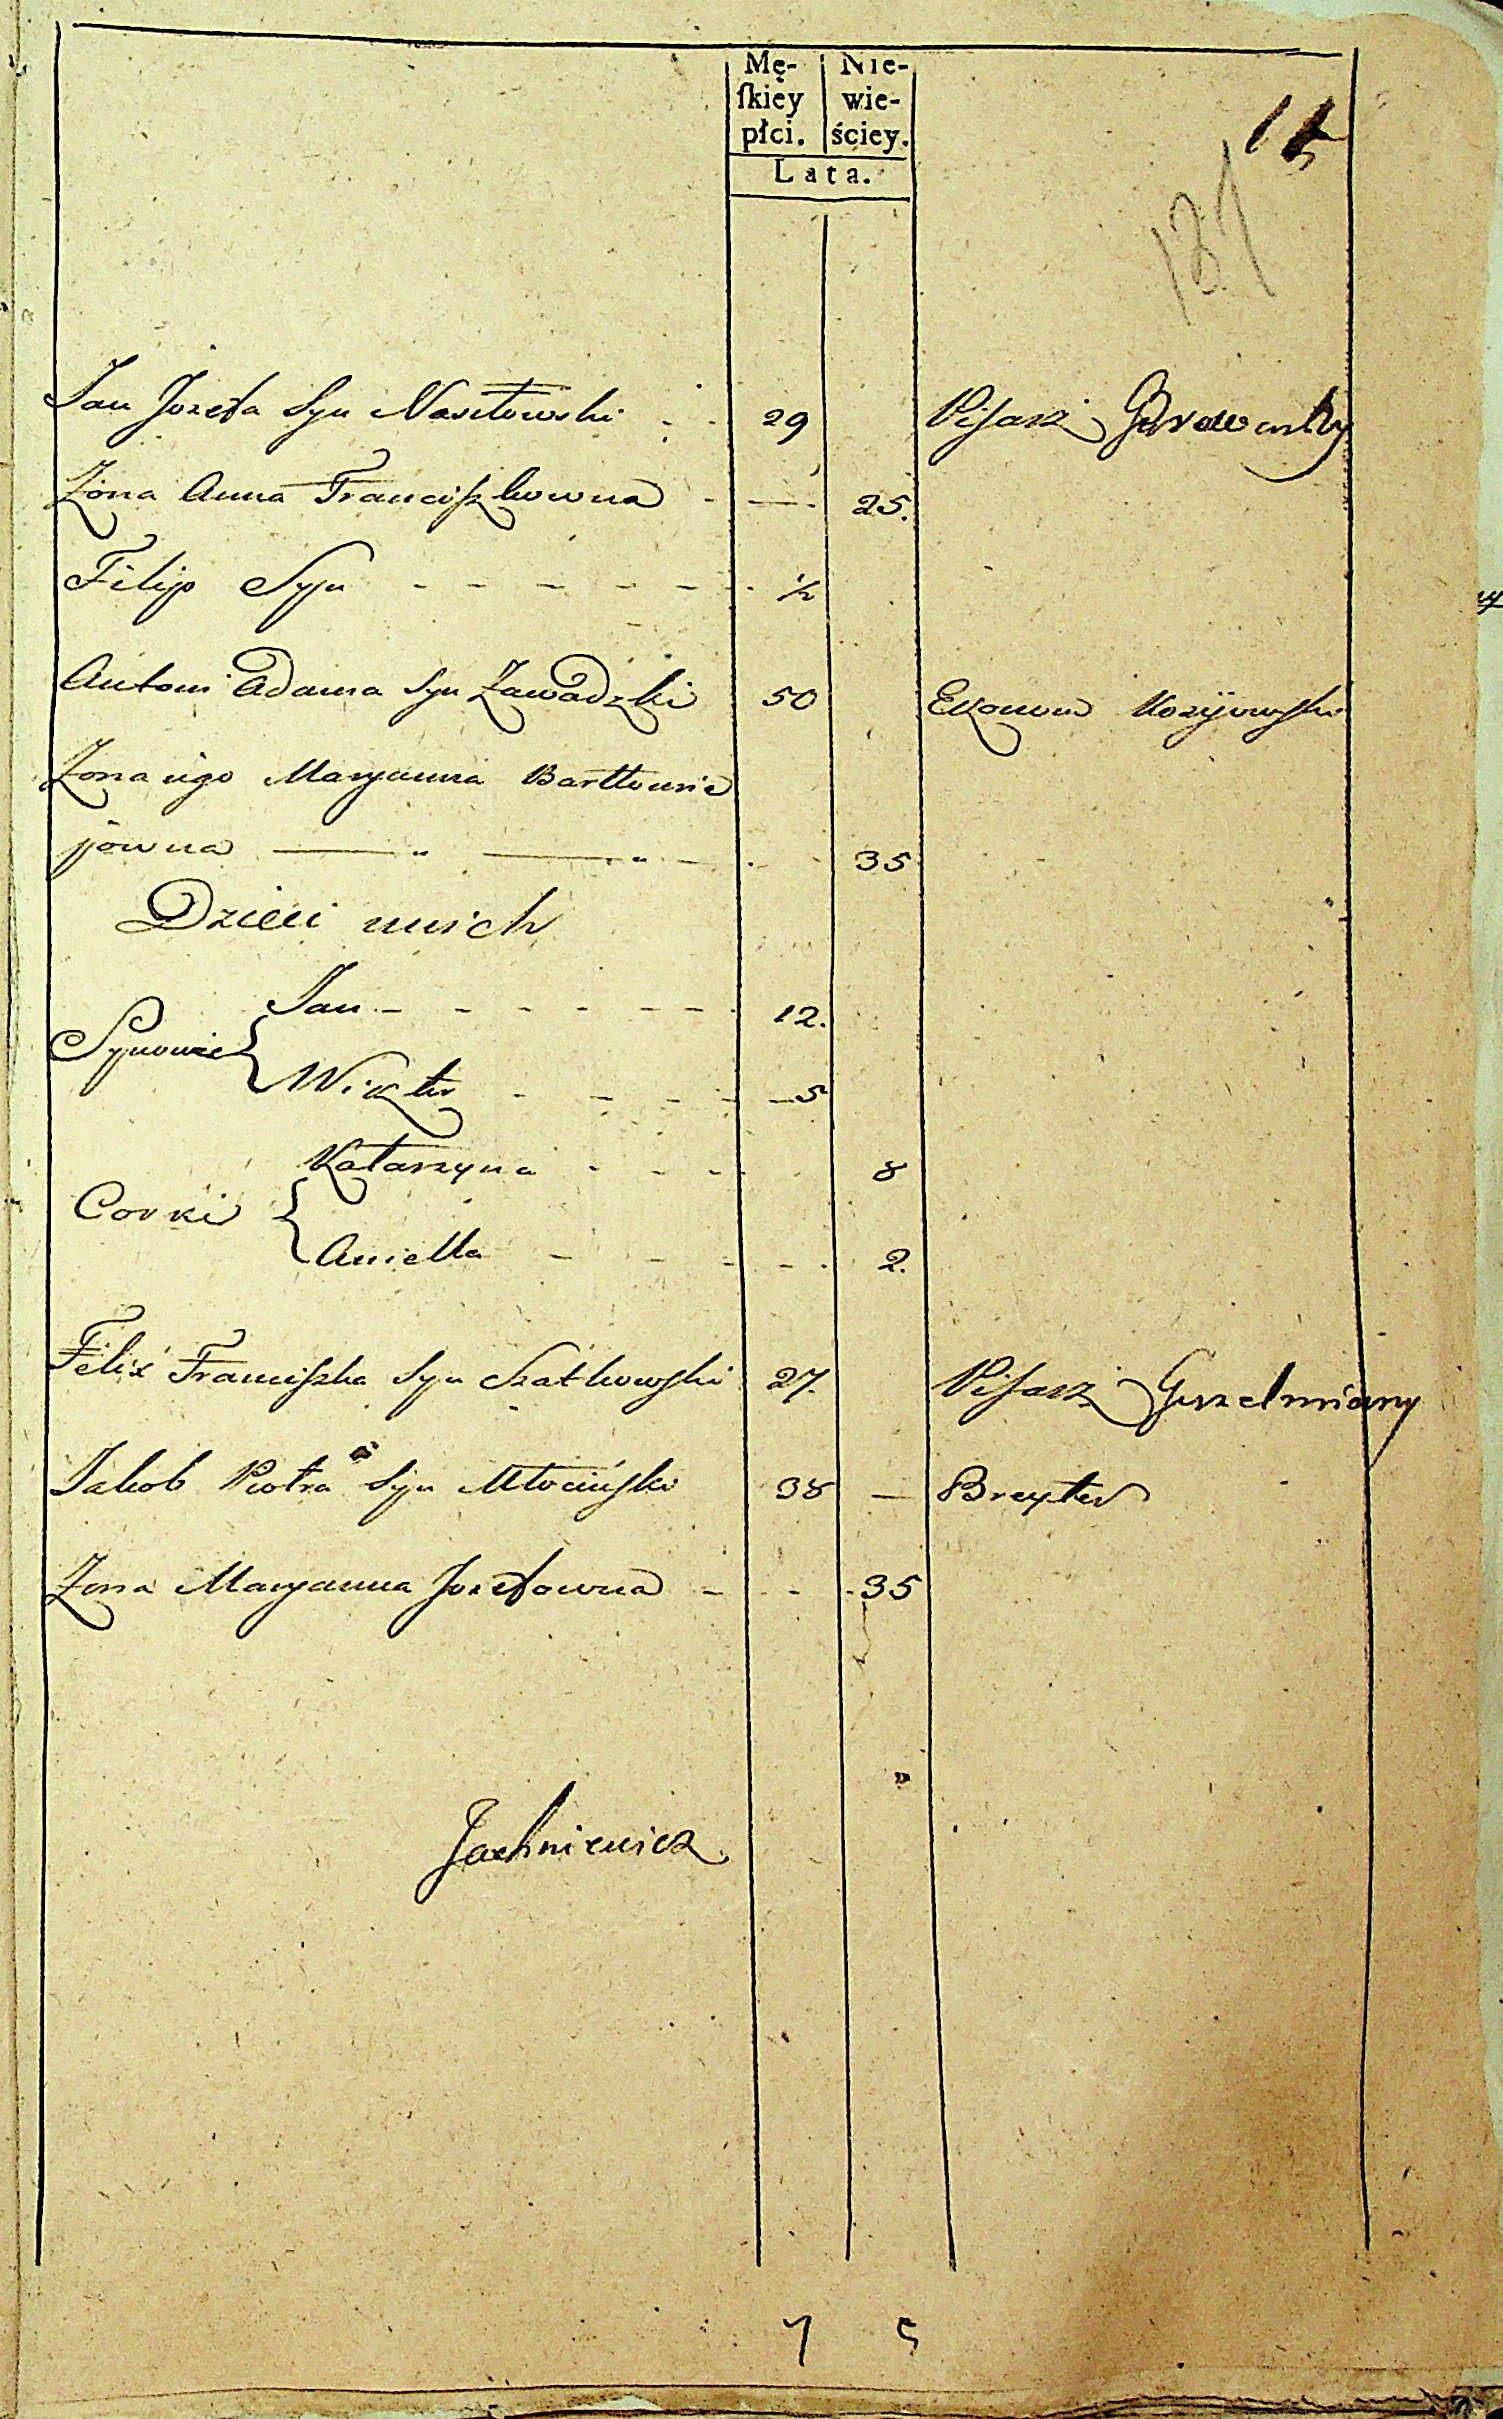 Mę- Nie-
ſkiey wie-
płci. ściey.
Lata.
131
Jan Jozefa Syn Nasiłowski 29 Pisarz
Żona Anna Franciszkowna 25.
Filip Syn ½
Antoni Adama Syn Zawadzki 50 Ekonom
Zona iego Maryanna Bartłomie
jowna 35
Dzieci u nich
Jan 12.
Synowie
Wiktor 5
Katarzyna 8
Corki
Aniella 2.
Felix Franciszka Syn Szatkowski 27. Pisarz Gorzelniany
Jakob Piotra Syn Młocinski 38 — Breyter
Zona Maryanna Jozefowna 35
Jachniewicz
7 5